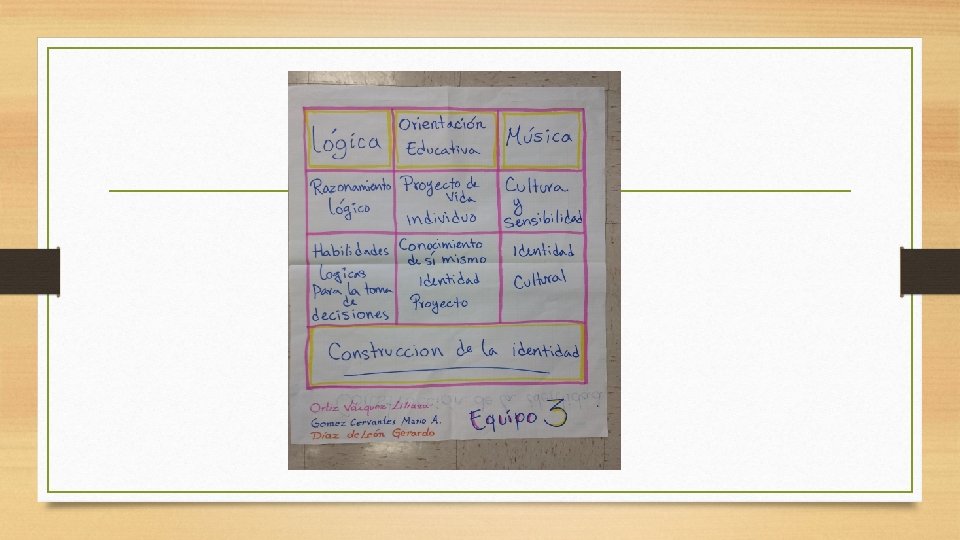 Lógica
Orientación
Educativa
Música
Razonamiento
lógico
Proyecto de
Vida
individuo
Cultura
y
sensibilidad
Habilidades
Logicas
Para la toma
de
decisiones
Conocimiento
de sí mismo
Identidad
Proyecto
Identidad
Cultural
Construccion de la identidad
Ortiz Vázquez Liliana
Gomez Cervantes Mario A.
Díaz de León Gerardo
Equipo 3